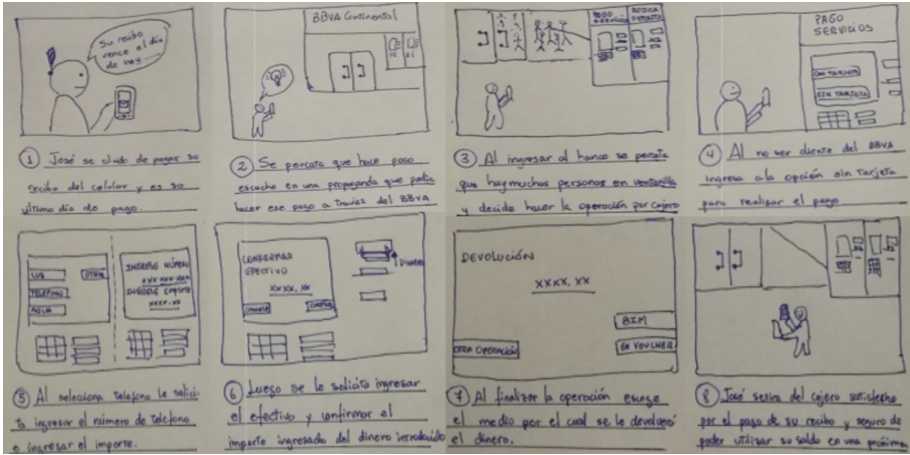 Su recibo
vence el día
de hoy...
① José se olvido de pagar su
recibo del celular y es su
último día de pago.
BBVA Continental
② Se percata que hace poco
escucho en una propaganda que podia
hacer ese pago a través del BBVA
PAGO
SERVICIOS
③ Al ingresar al banco se percata
que hay muchas personas en ventanilla
y decide hacer la operación por cajero
PAGO
SERVICIOS
CON TARJETA
SIN TARJETA
④ Al no ser cliente del BBVA
ingresa a la opción sin tarjeta
para realizar el pago
LUZ
OTROS
TELEFONO
AGUA
INGRESE NÚMERO
XXX XXX XXX
INGRESE IMPORTE
XXXX.XX
⑤ Al selecciona telefono le solici-
ta ingresar el número de telefono
e ingresar el importe.
CONFIRMAR
EFECTIVO
XXXX.XX
DINERO
⑥ Luego se le solicita ingresar
el efectivo y confirmar el
importe ingresado del dinero introducido
DEVOLUCIÓN
XXXX.XX
BIM
OTRA OPERACIÓN
EN VOUCHER
⑦ Al finalizar la operación escoge
el medio por el cual se le devolverá
el dinero.
⑧ José retira del cajero satisfecho
por el pago de su recibo y seguro de
poder utilizar su saldo en una próxima